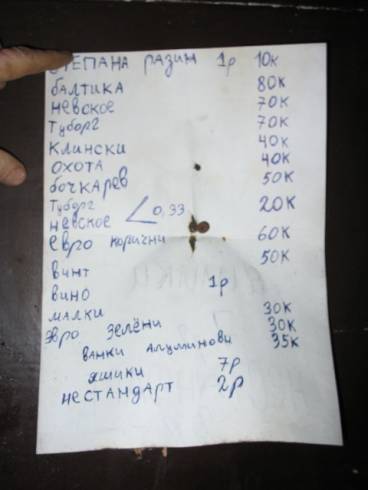 СТЕПАНА РАЗИН 1р 10к
балтика 80к
невское 70к
Туборг 70к
клински 40к
охота 40к
бочкарев 50к
Туборг
невское < 0,33 20к
евро корични 60к
винт 50к
вино 1р
малки 30к
эвро зелёни 30к
ванки алуминови 35к
яшики 7р
нестандарт 2р